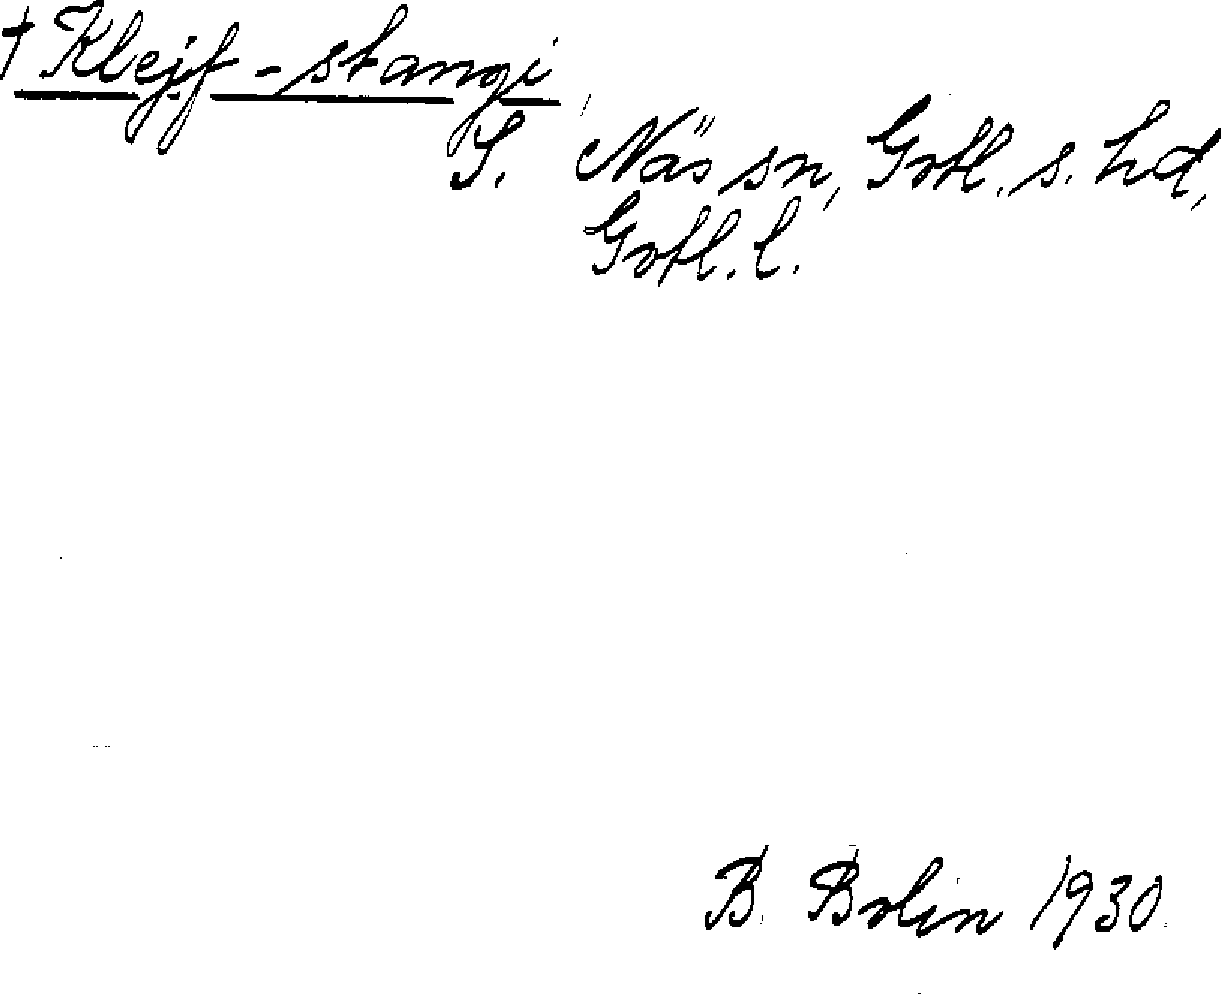 † Klejf-stangi
S. Näs sn, Gotl. s. hd,
Gotl. l.
B. Bolin 1930.